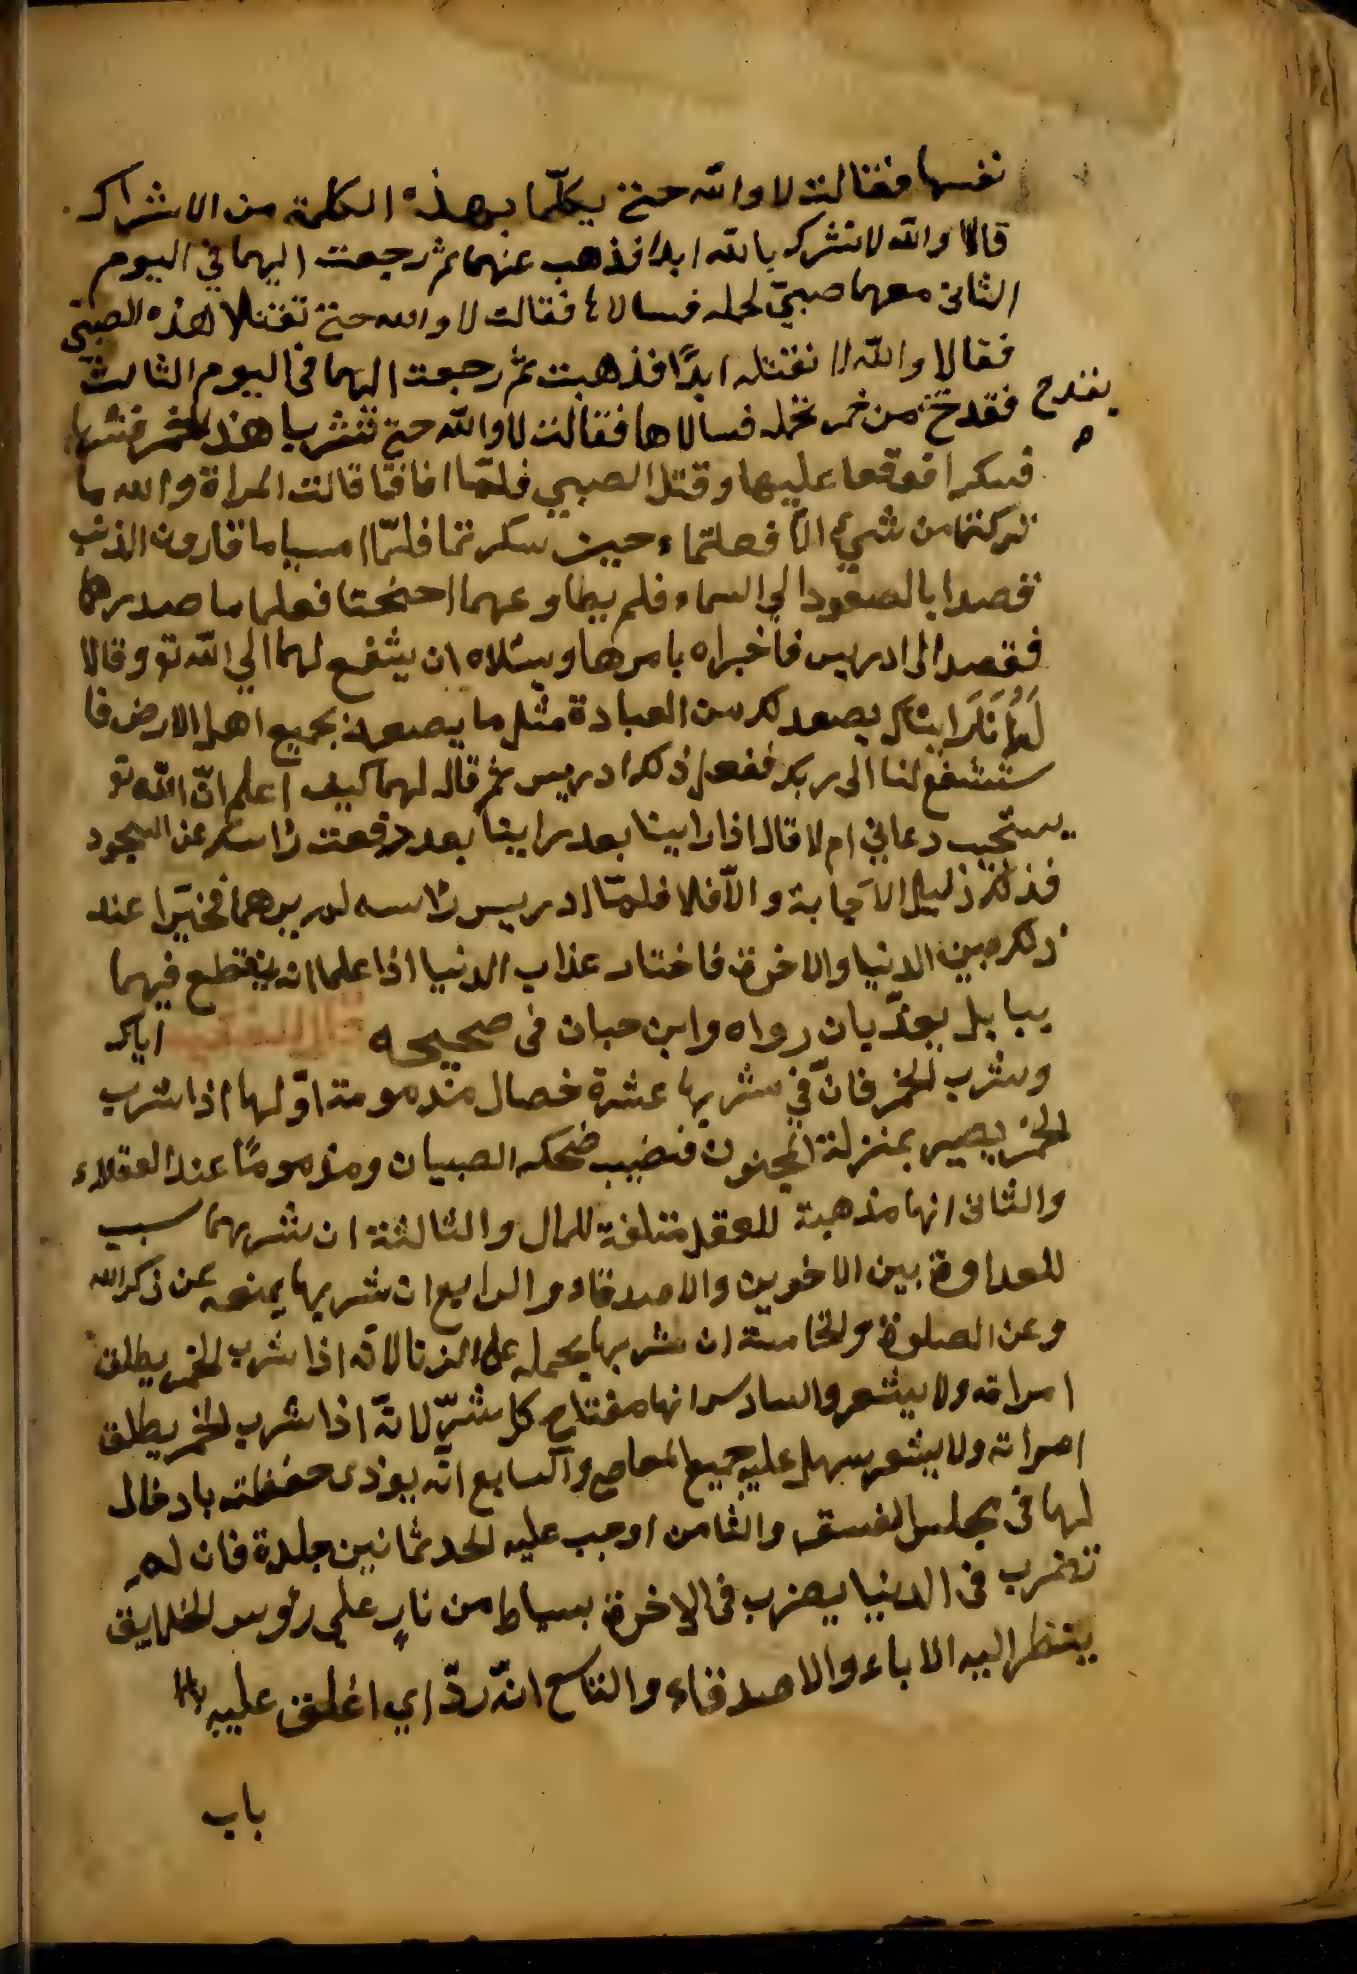 نفسها فقالت لا والله حتى يكلما بهذه الكلمة من الاشراك
قالا والله لا نشرك بالله ابدا فذهب عنهما ثم رجعت اليهما في اليوم
الثاني معها صبيّ تحمله فسالاها فقالت لا والله حتى تقتلا هذه الصبيّ
فقالا والله لا نقتله ابدًا فذهبت ثم رجعت اليهما في اليوم الثالث
بقدح
فقدح من خمر تحمله فسالاها فقالت لا والله حتى تشربا هذا الخمر فشربا
فسكرا فوقعا عليها وقتلا الصبي فلمّا افاقا قالت المراة والله ما
تركتما من شيء الا فعلتماه حين سكرتما فلمّا امسيا ما قارون الذنب
فقصدا بالصعود الي السماء فلم يطاوعهما اجنحتا فعلما ما صدر بهما
فقصدا الى ادريس فاخبراه بامرهما وسئلاه ان يشفع لهما الي الله تع وقالا
له انا راينك يصعد لك من العبادة مثل ما يصعد بجميع اهل الارض فا
ستشفع لنا الى ربك ففعل ذلك ادريس ثم قال لهما كيف اعلم انّ الله تع
يستجيب دعائي ام لا قالا اذا راينا بعد راينا بعد رفعت راسك عن السجود
فذلك دليل الاجابة والّا فلا فلمّا ادريس راسه لم يرهما فخيّرا عند
ذلك بين الدنيا والاخرة فاختار عذاب الدنيا اذا علما انه ينقطع فهما
ببابل يعذّبان رواه وابن حبان في صحيحه قال الفقيه اياك
وشرب الخمر فانّ في شربها عشرة خصال مذمومة اوّلها اذا شرب
الخمر يصير بمنزلة المجنون فيصير ضحكه الصبيان ومذمومًا عند العقلاء
والثاني انها مذهبة للعقل متلفة للمال والثالثة ان شربها سبب
للعداوة بين الاخوين والاصدقاء والرابع ان شربها يمنعه عن ذكر الله
وعن الصلوة والخامسة ان شربها يحمله على الزنا لانّه اذا شرب الخمر يطلق
امراته ولا يشعر والسادس انها مفتاح كل شرّ لانّه اذا شرب الخمر يطلق
امراته ولا يشعر سهل عليه جميع المعاصي والسابع انّه يوذى حفظته بادخال
لها في مجلس الفسق والثامن اوجب عليه الحد ثمانين جلدة فان لم
تضرب في الدنيا يضرب في الاخرة بسياط من نارٍ على رؤس الخلايق
ينظر اليه الاباء والاصدقاء والتاسع انّه ردّ اي اغلق عليه
باب